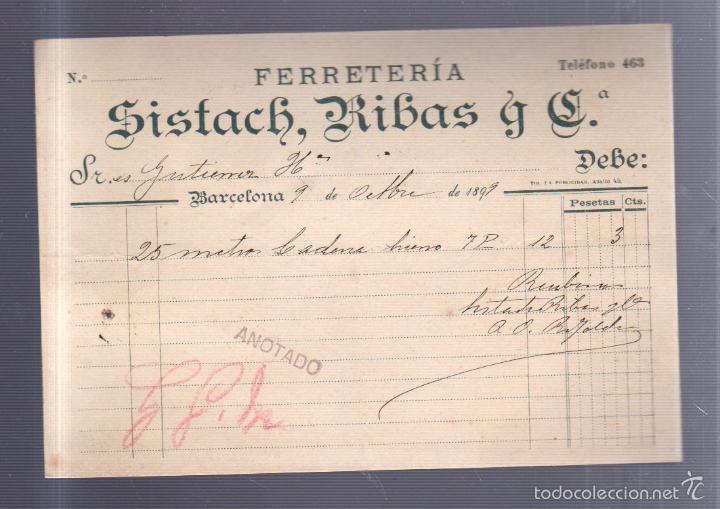 N.º
FERRETERÍA
Teléfono 463
Sistach, Ribas y C.ª
Sr.es Gutierrez Hos
Debe:
Tip. LA PUBLICIDAD, Asalto 45.
Barcelona 9 de Octbre de 1899
Pesetas Cts.
25 metros Cadena hierro 7P 12 3
Recibimos
Sistach Ribas y Cª
ANOTADO
todocoleccion
todocoleccion.net